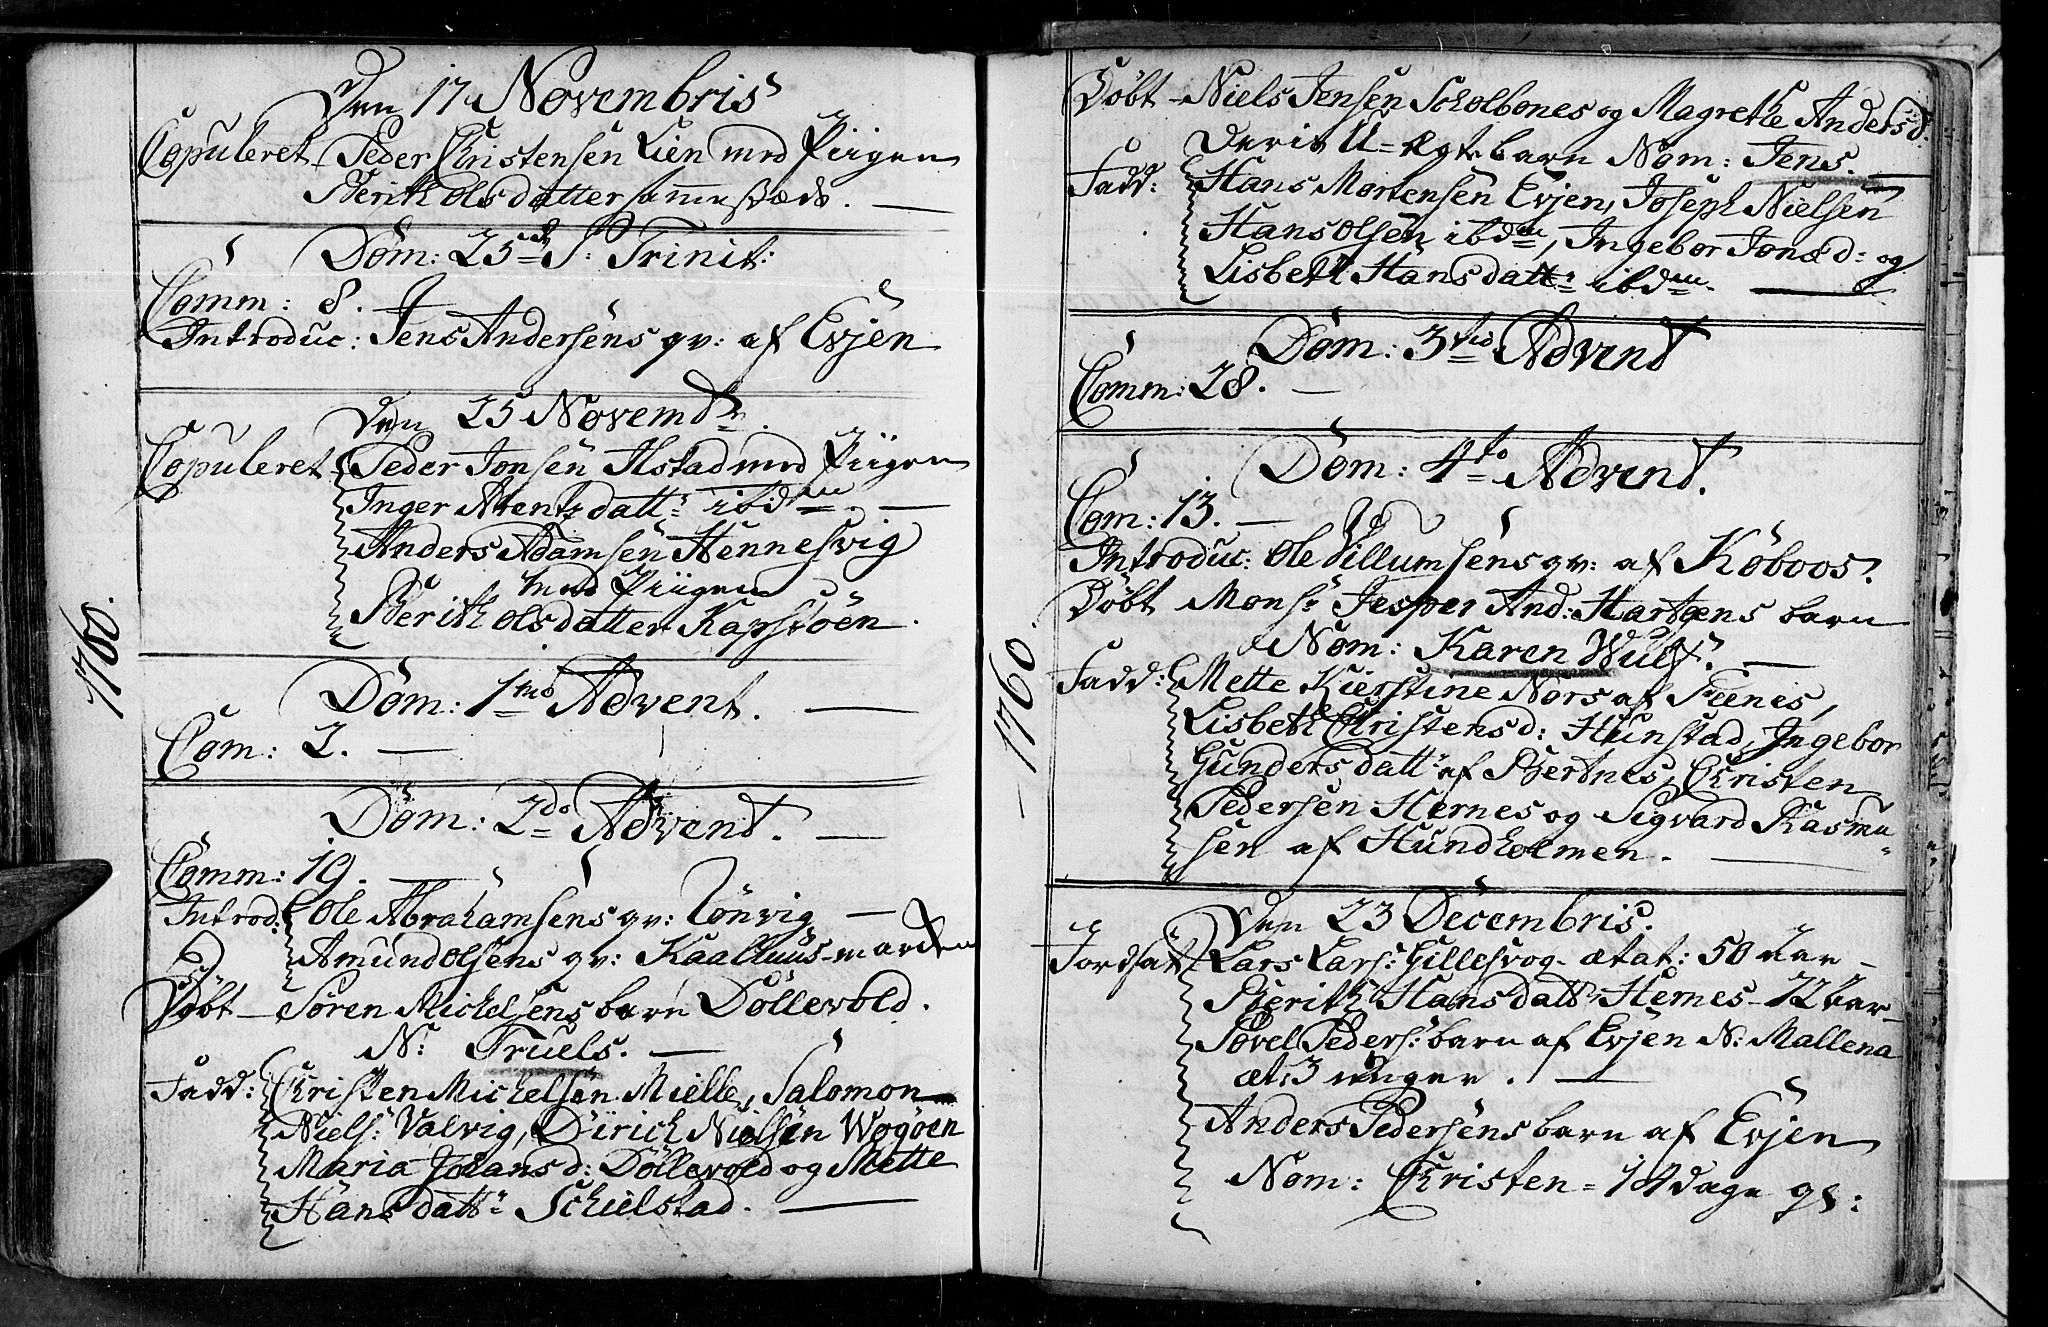 Den 17 Novembris
Copuleret Peder Christensen Lien med Piigen
Berith Olsdatter sammesteds.
Dom: 25 S. Trinit:
Comm: 8.
Introduc: Jens Andersens qv: af Evjen
1760.
Den 25 Novembr.
Copuleret Peder Jonsen Ilstad med Piigen
Inger Arentzdatt: ibdem.
Anders Adamsen Hennesvig
med Piigen
Berith Olsdatter Kapsøen.
Dom: 1mo Advent.
Com: 2.
Dom: 2do Advent.
Comm: 19.
Introd: Ole Abrahamsens qv: Lønvig
Amund Olsens qv: Kaalhuus-marchen
Døbt - Søren Michelsens barn Döllevold.
N: Truels.
Fadd: Christen Michelsen Mielle, Salomon
Niels: Valvig, Dirich Nielsen Wogøen
Maria Johansd: Döllevold og Mette
Hans datt: Schielstad.
Døbt - Niels Jensen Scholbones og Magrethe Andersd:
Deris U-ægte barn Nom: Jens.
Fadd: Hans Mortensen Evjen, Joseph Nielsen
Hans Olsen ibdem, Ingebor Jonsd: og
Lisbeth Hansdatt: ibdem.
Dom: 3tio Advent
Comm: 28.
Dom: 4to Advent.
Com: 13.
Introduc: Ole Villumsens qv: af Köboos.
Døbt Mons: Jesper And: Hartgens barn
Nom: Karen Wulf.
1760.
Fadd: Mette Kierstine Nors af
Lisbeth Christensd: Hunstad, Ingebor
Gundersdatt: af Bertnes, Christen
Pedersen Hernes og Sigvard Rasmu-
sen af Hundholmen.
Den 23 Decembris.
Jordsat Lars Lars: Gillesvog - ætat: 50 aar -
Berith Hansdatt: Hernes - 72 aar -
Povel Peders: barn af Evjen N: Mallena
æt: 3 uger.
Anders Pedersens barn af Evjen
Nom: Christen = 14 dage gl: